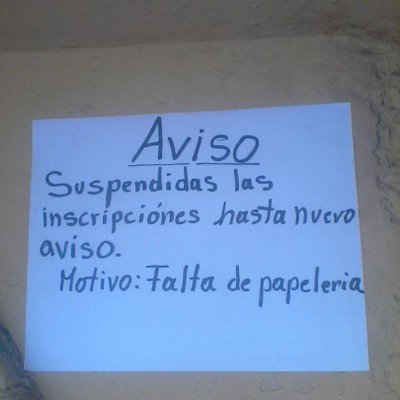 Aviso
Suspendidas las
inscripciónes hasta nuevo
aviso.
Motivo: Falta de papeleria